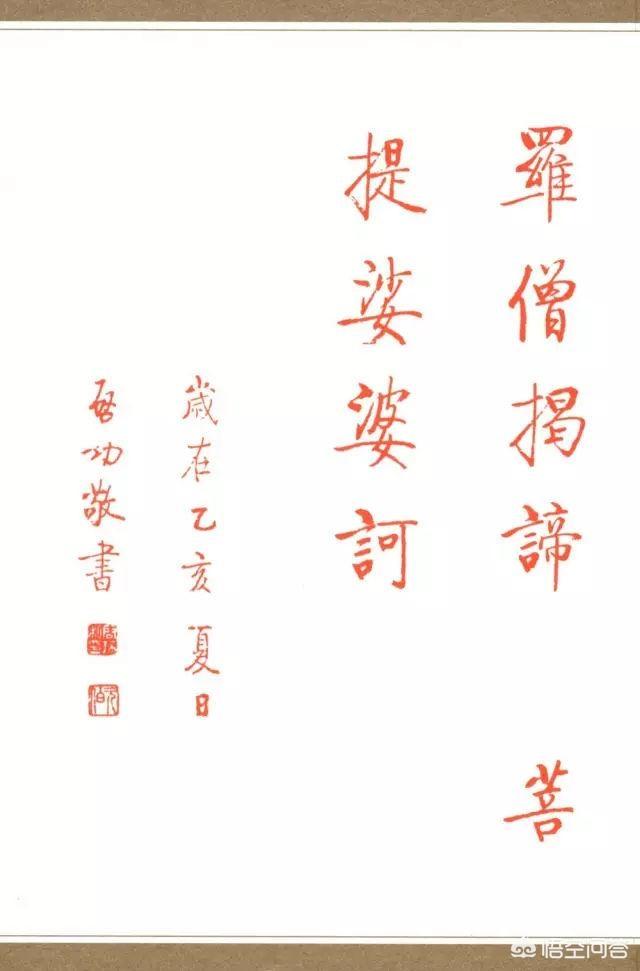 羅僧揭諦 菩
提娑婆訶
歲在乙亥夏日
啓功敬書
悟空问答